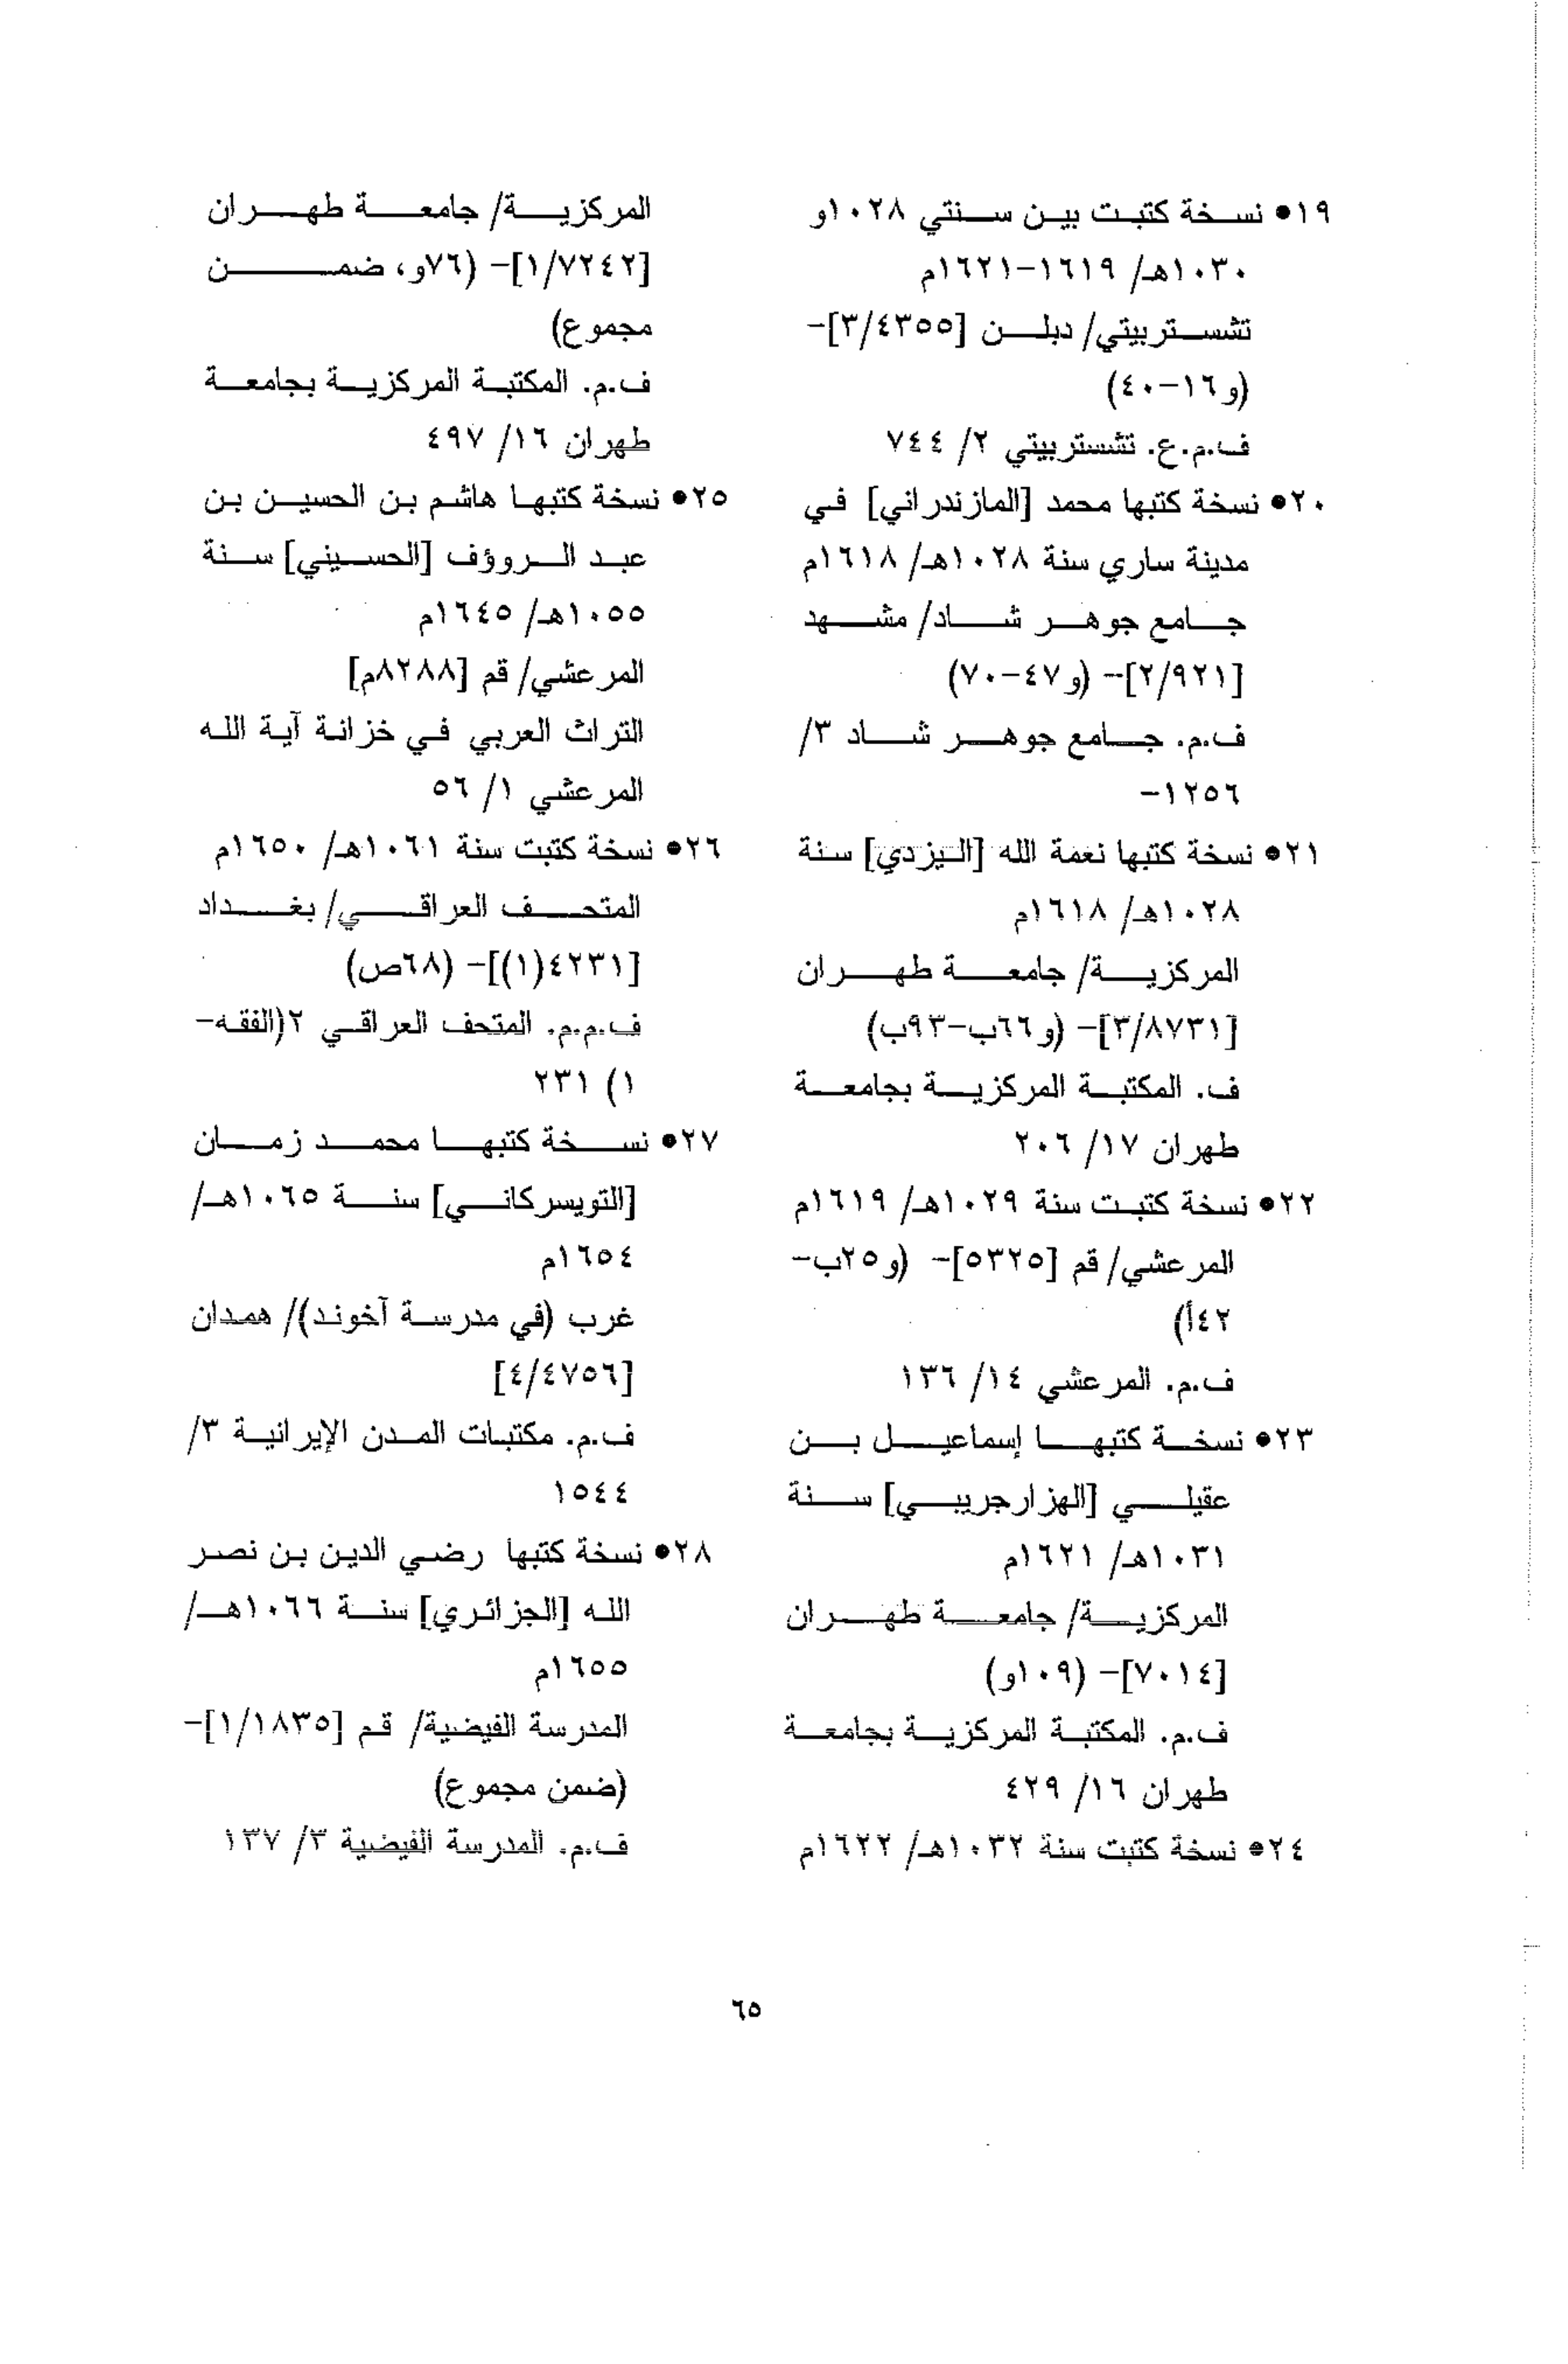 ١٩• نسخة كتبت بين سنتي ١٠٢٨و
١٠٣٠هـ/ ١٦١٩-١٦٢١م
تشستربيتي/ دبلن [٣/٤٣٥٥]-
(و١٦-٤٠)
ف.م.ع. تشستربيتي ٢/ ٧٤٤
٢٠• نسخة كتبها محمد [المازندراني] في
مدينة ساري سنة ١٠٢٨هـ/ ١٦١٨م
جامع جوهر شاد/ مشهد
[٢/٩٢١]- (و٤٧-٧٠)
ف.م. جامع جوهر شاد ٣/
١٢٥٦-
٢١• نسخة كتبها نعمة الله [اليزدي] سنة
١٠٢٨هـ/ ١٦١٨م
المركزية/ جامعة طهران
[٣/٨٧٣١]- (و٦٦ب-٩٣ب)
ف. المكتبة المركزية بجامعة
طهران ١٧/ ٢٠٦
٢٢• نسخة كتبت سنة ١٠٢٩هـ/ ١٦١٩م
المرعشي/ قم [٥٣٢٥]- (و٢٥ب-
٤٢أ)
ف.م. المرعشي ١٤/ ١٣٦
٢٣• نسخة كتبها إسماعيل بن
عقيلي [الهزارجريبي] سنة
١٠٣١هـ/ ١٦٢١م
المركزية/ جامعة طهران
[٧٠١٤]- (١٠٩و)
ف.م. المكتبة المركزية بجامعة
طهران ١٦/ ٤٢٩
٢٤• نسخة كتبت سنة ١٠٣٢هـ/ ١٦٢٢م
المركزية/ جامعة طهران
[١/٧٢٤٢]- (٧٦و، ضمن
مجموع)
ف.م. المكتبة المركزية بجامعة
طهران ١٦/ ٤٩٧
٢٥• نسخة كتبها هاشم بن الحسين بن
عبد الرووؤف [الحسيني] سنة
١٠٥٥هـ/ ١٦٤٥م
المرعشي/ قم [٨٢٨٨م]
التراث العربي في خزانة آية الله
المرعشي ١/ ٥٦
٢٦• نسخة كتبت سنة ١٠٦١هـ/ ١٦٥٠م
المتحف العراقي/ بغداد
[٤٢٣١(١)]- (٦٨ص)
ف.م.م. المتحف العراقي ٢(الفقه-
١) ٢٣١
٢٧• نسخة كتبها محمد زمان
[التويسركاني] سنة ١٠٦٥هـ/
١٦٥٤م
غرب (في مدرسة آخوند)/ همدان
[٤/٤٧٥٦]
ف.م. مكتبات المدن الإيرانية ٣/
١٥٤٤
٢٨• نسخة كتبها رضي الدين بن نصر
الله [الجزائري] سنة ١٠٦٦هـ/
١٦٥٥م
المدرسة الفيضية/ قم [١/١٨٣٥]-
(ضمن مجموع)
ف.م. المدرسة الفيضية ٣/ ١٣٧
٦٥